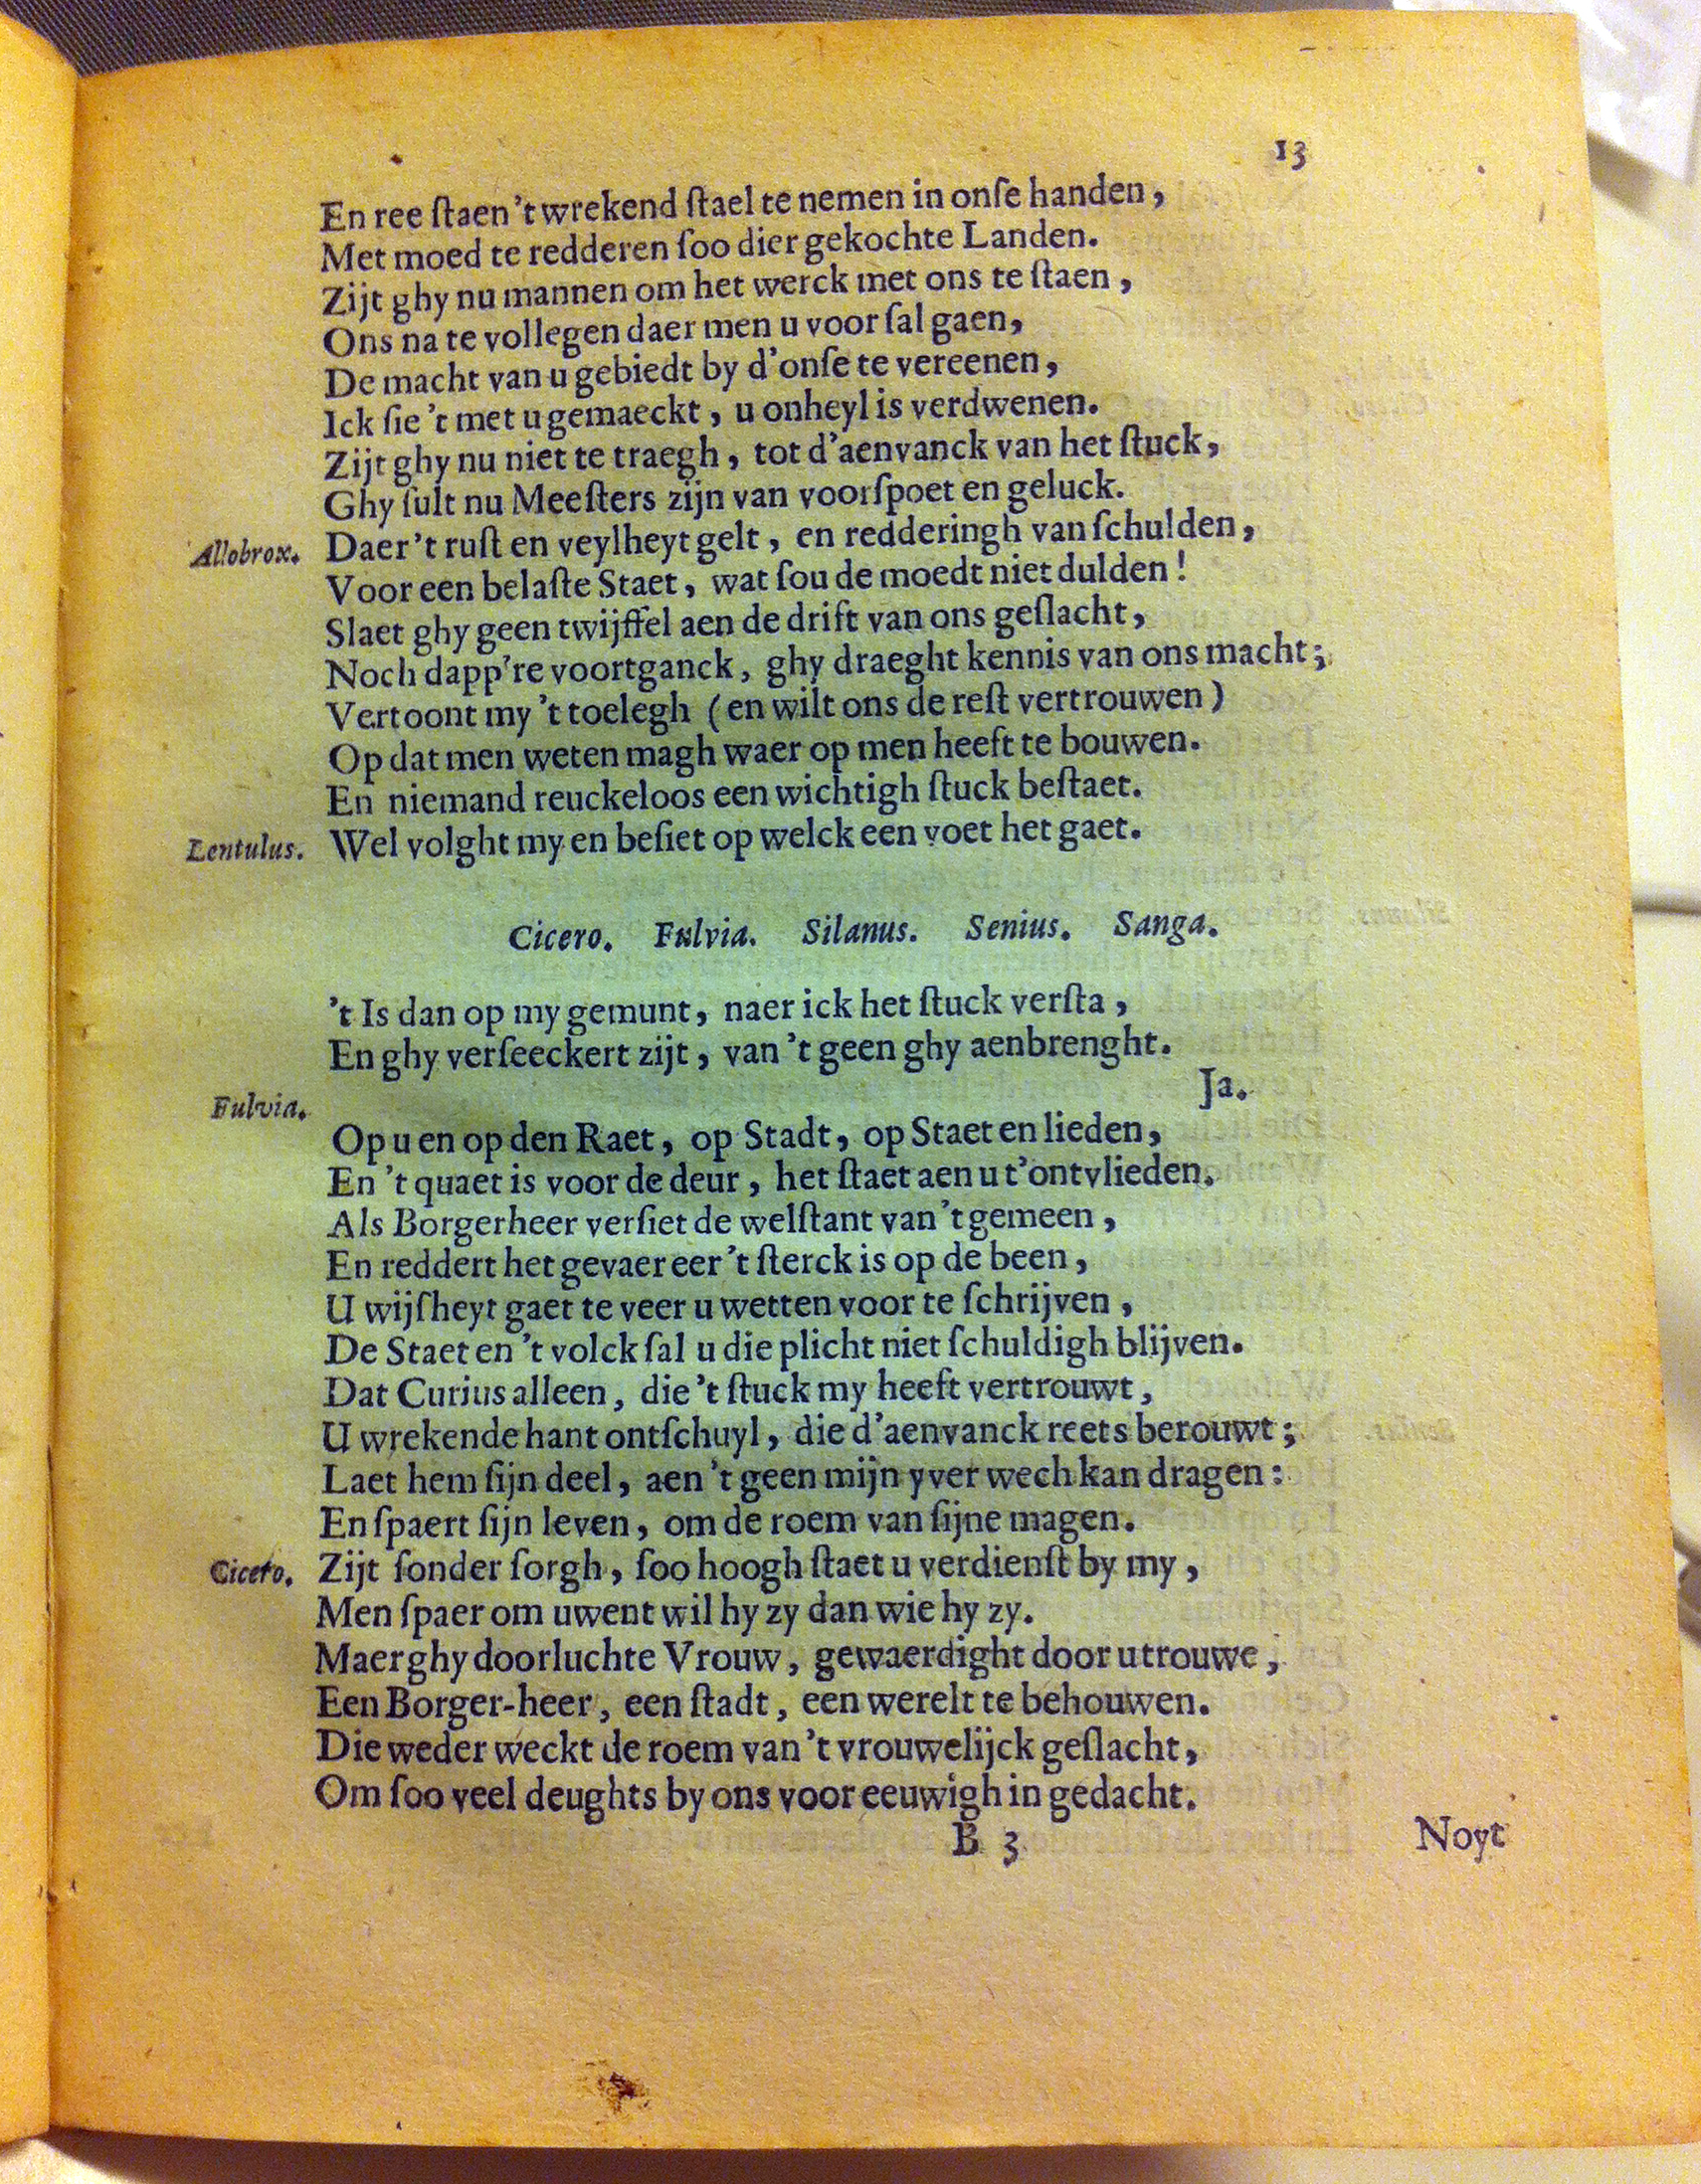 13
En ree ſtaen 't wrekend ſtael te nemen in onſe handen,
Met moed te redderen ſoo dier gekochte Landen.
Zijt ghy nu mannen om het werck met ons te ſtaen,
Ons na te vollegen daer men u voor ſal gaen,
De macht van u gebiedt by d'onſe te vereenen,
Ick ſie 't met u gemaeckt, u onheyl is verdwenen.
Zijt ghy nu niet te traegh, tot d'aenvanck van het ſtuck,
Ghy ſult nu Meeſters zijn van voorſpoet en geluck.
Allobrox. Daer 't ruſt en veylheyt gelt, en redderingh van ſchulden,
Voor een belaſte Staet, wat ſou de moedt niet dulden!
Slaet ghy geen twijffel aen de drift van ons geſlacht,
Noch dapp're voortganck, ghy draeght kennis van ons macht;
Vertoont my 't toelegh (en wilt ons de reſt vertrouwen)
Op dat men weten magh waer op men heeft te bouwen.
En niemand reuckeloos een wichtigh ſtuck beſtaet.
Lentulus. Wel volght my en beſiet op welck een voet het gaet.
Cicero. Fulvia. Silanus. Senius. Sanga.
't Is dan op my gemunt, naer ick het ſtuck verſta,
En ghy verſeeckert zijt, van 't geen ghy aenbrenght.
Fulvia. Ja.
Op u en op den Raet, op Stadt, op Staet en lieden,
En 't quaet is voor de deur, het ſtaet aen u t'ontvlieden.
Als Borgerheer verſiet de welſtant van 't gemeen,
En reddert het gevaer eer 't ſterck is op de been,
U wijſheyt gaet te veer u wetten voor te ſchrijven,
De Staet en 't volck ſal u die plicht niet ſchuldigh blijven.
Dat Curius alleen, die 't ſtuck my heeft vertrouwt,
U wrekende hant ontſchuyl, die d'aenvanck reets berouwt;
Laet hem ſijn deel, aen 't geen mijn yver wech kan dragen:
En ſpaert ſijn leven, om de roem van ſijne magen.
Cicero. Zijt ſonder ſorgh, ſoo hoogh ſtaet u verdienſt by my,
Men ſpaer om uwent wil hy zy dan wie hy zy.
Maer ghy doorluchte Vrouw, gewaerdight door u trouwe,
Een Borger-heer, een ſtadt, een werelt te behouwen.
Die weder weckt de roem van 't vrouwelijck geſlacht,
Om ſoo veel deughts by ons voor eeuwigh in gedacht.
B 3 Noyt